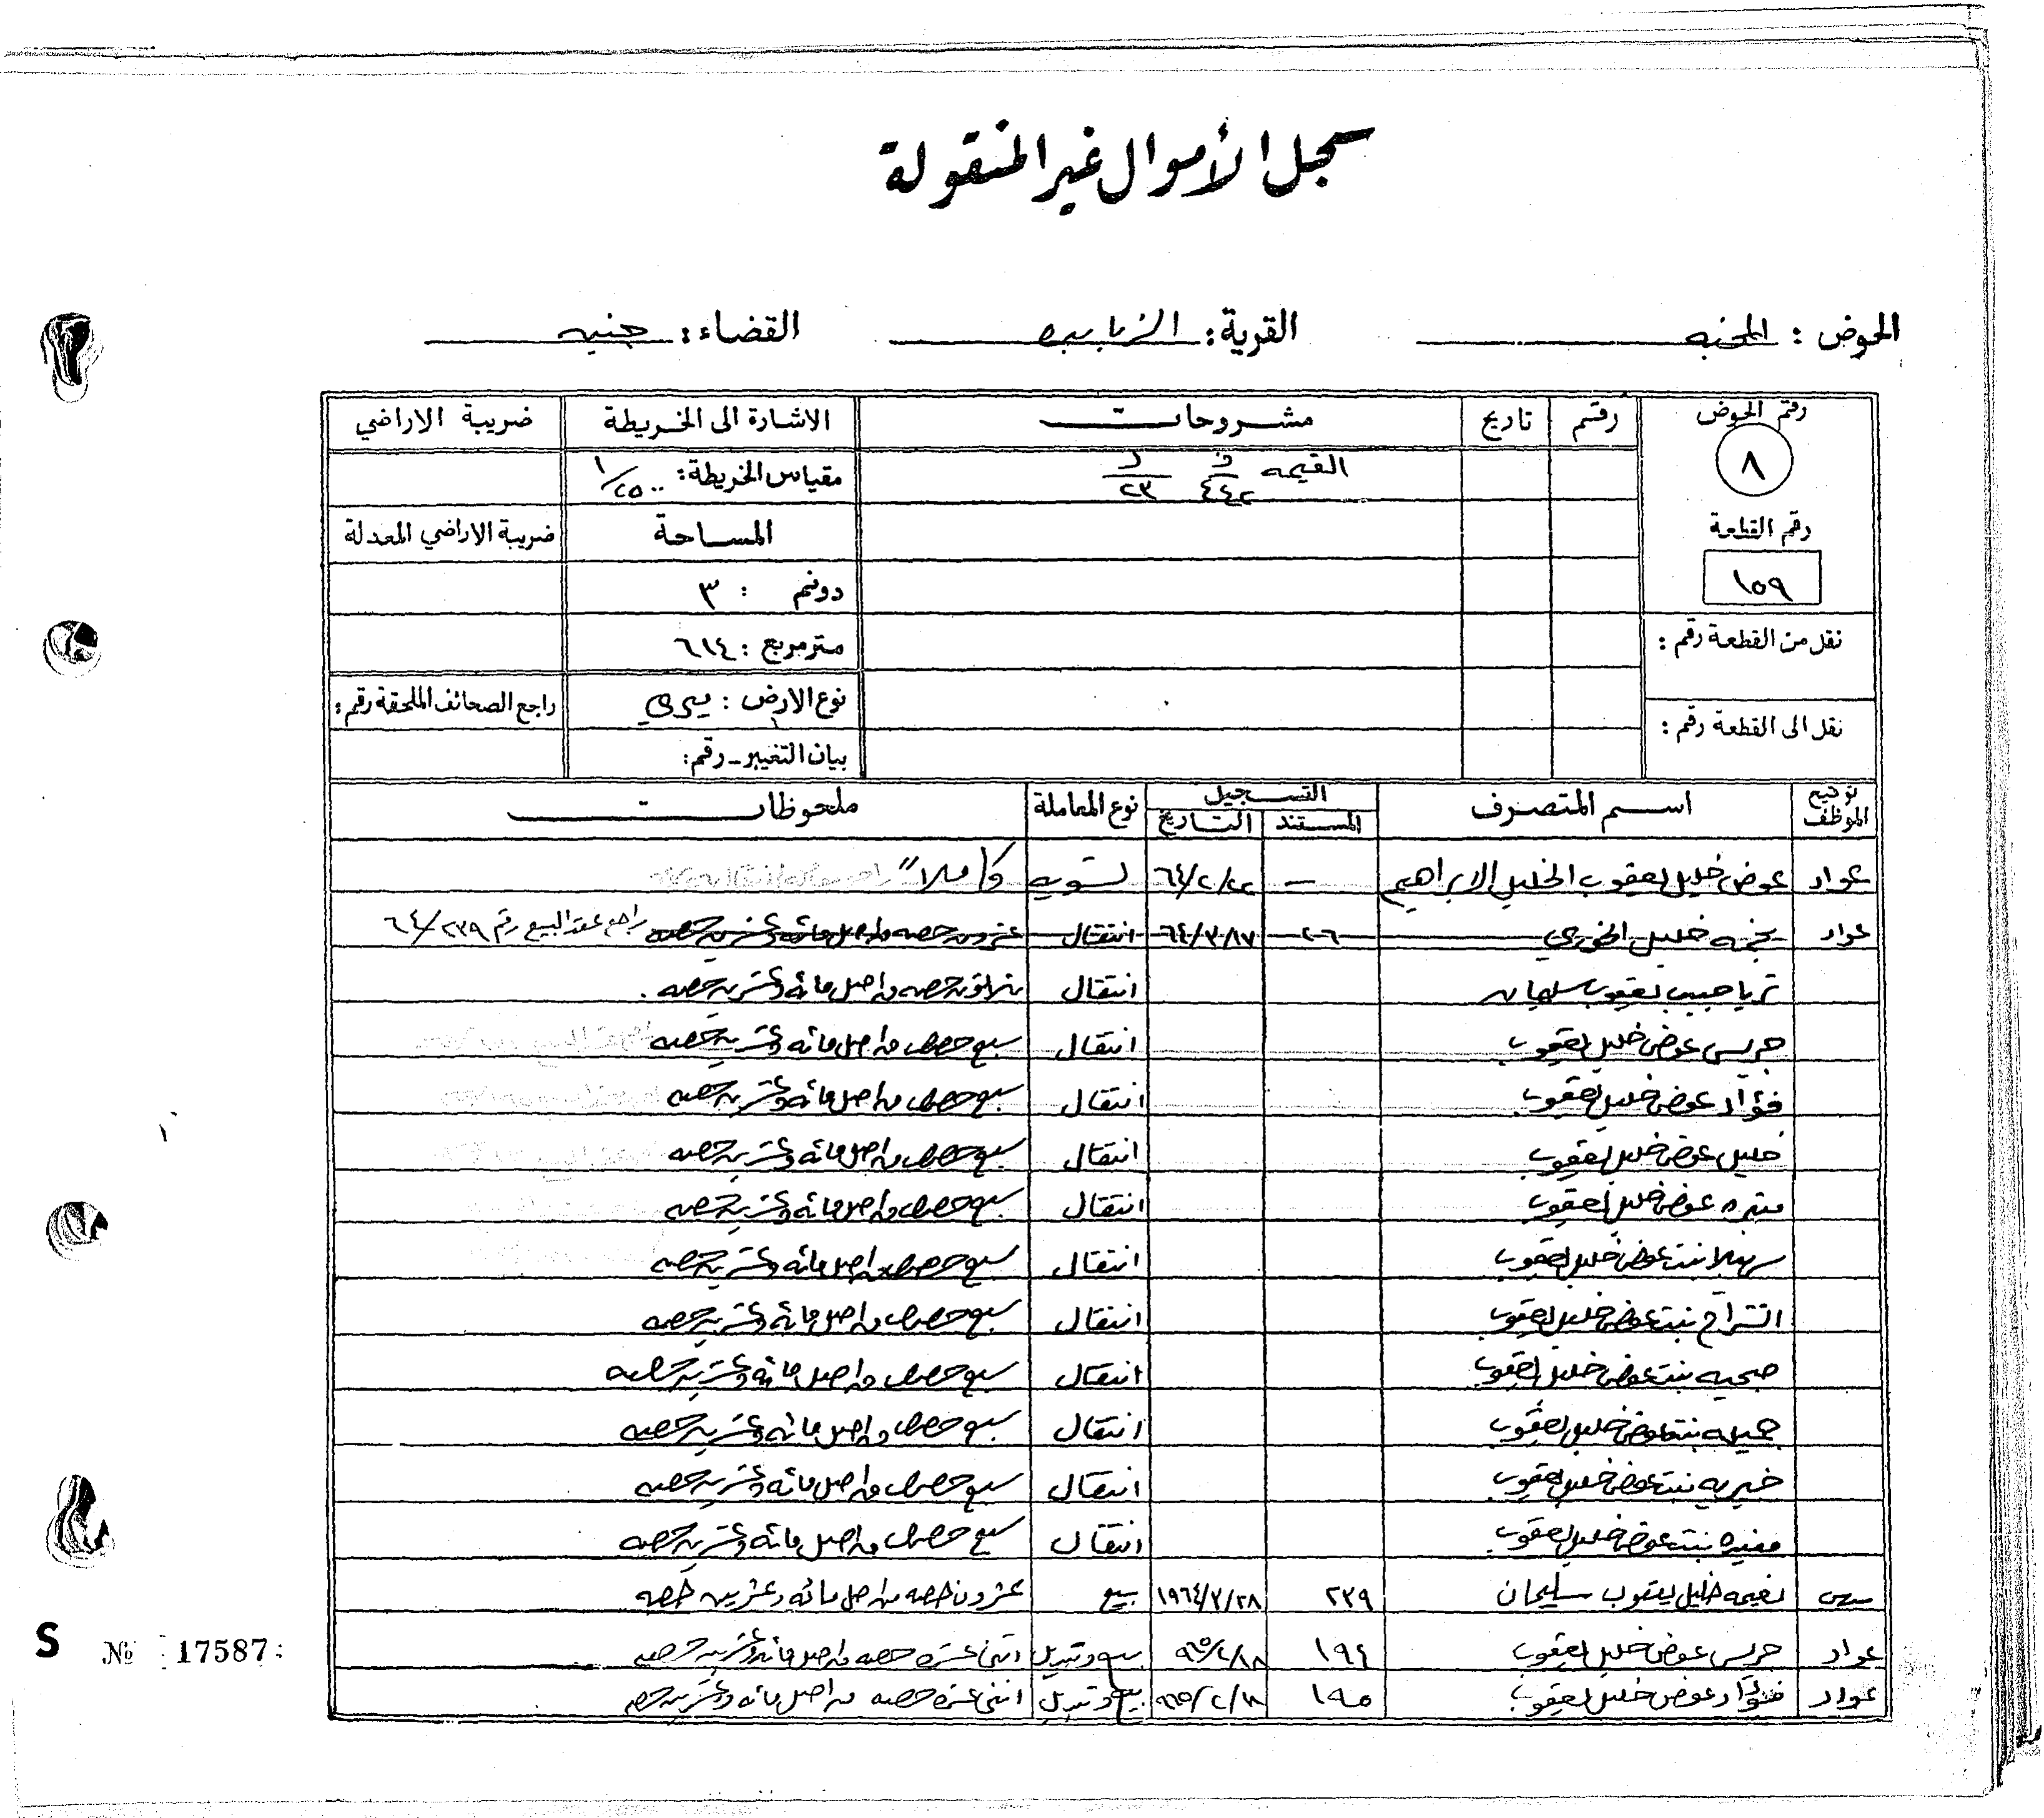 سجل الأموال غير المنقولة
الحوض : المحنه القرية : الزبابده القضاء : جنين
رقم الحوض رقم تاريخ مشروحات الاشارة الى الخريطة ضريبة الاراضي
٨ القيمه ف ٤٤٢ د ٢٣ مقياس الخريطة : ١/٢٥٠٠
رقم القطعة المساحة ضريبة الاراضي المعدلة
١٥٩ دونم : ٣
نقل من القطعة رقم : متر مربع : ٦١٤
نوع الارض : ميري راجع الصحائف الملحقة رقم :
نقل الى القطعة رقم : بيان التغيير - رقم :
توقيع الموظف اسم المتصرف التسجيل نوع المعاملة ملحوظات
المستند التاريخ
عواد عوض خليل يعقوب الخليل الابراهيم — ٦٤/٢/٢٢ تسويه كاملا"
عواد نجمه خليل الخوري ٢٠٦ ٦٤/٣/١٧ انتقال عشرون حصه من اصل مائه وعشرين حصه راجع عقد البيع رقم ٦٤/٢٣٩
ثريا حبيب يعقوب سليمان انتقال ثلاثون حصه من اصل مائه وعشرين حصه .
جريس عوض خليل يعقوب انتقال سبع حصص من اصل مائه وعشرين حصه
فؤاد عوض خليل يعقوب انتقال سبع حصص من اصل مائه وعشرين حصه
خليل عوض خليل يعقوب انتقال سبع حصص من اصل مائه وعشرين حصه
متره عوض خليل يعقوب انتقال سبع حصص من اصل مائه وعشرين حصه
سهيلا بنت عوض خليل يعقوب انتقال سبع حصص من اصل مائه وعشرين حصه
انشراح بنت عوض خليل يعقوب انتقال سبع حصص من اصل مائه وعشرين حصه
صبحيه بنت عوض خليل يعقوب انتقال سبع حصص من اصل مائه وعشرين حصه
جميله بنت عوض خليل يعقوب انتقال سبع حصص من اصل مائه وعشرين حصه
خيريه بنت عوض خليل يعقوب انتقال سبع حصص من اصل مائه وعشرين حصه
مفيده بنت عوض خليل يعقوب انتقال سبع حصص من اصل مائه وعشرين حصه
نعيمه خليل يعقوب سليمان ٢٣٩ ١٩٦٤/٣/٢٨ بيع عشرون حصه من اصل مائه وعشرين حصه
عواد جريس عوض خليل يعقوب ١٩٤ ٩٦٥/٢/١٨ بيع وتبديل اثنى عشره حصه من اصل مائه وعشرين حصه
عواد فؤاد عوض خليل يعقوب ١٩٥ ٩٦٥/٢/١٨ بيع وتبديل اثنى عشره حصه من اصل مائه وعشرين حصه
S № 17587